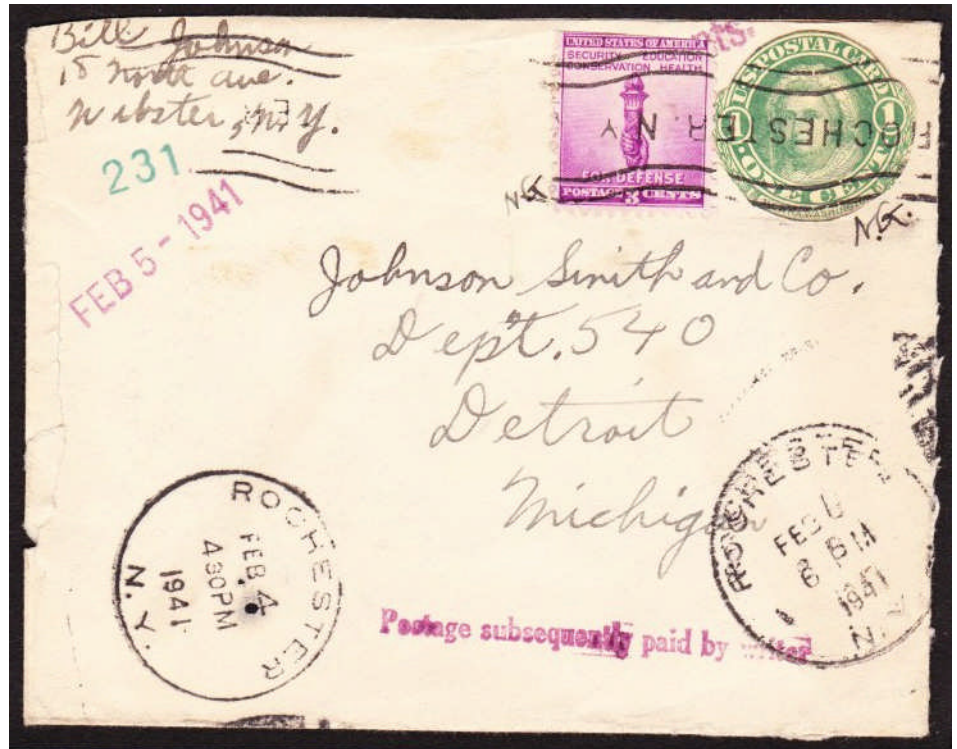 Bill Johnson
15 North ave.
Webster, N.Y.
231
FEB 5 - 1941
nts.
UNITED STATES OF AMERICA
SECURITY EDUCATION
CONSERVATION HEALTH
FOR DEFENSE
POSTAGE 3 CENTS
U.S. POSTAL CARD
1 1
ONE CENT
ROCHESTER. N.Y
N.G.
N.G.
Johnson Smith and Co.
Dept. 540
Detroit
Michigan
ROCHESTER
FEB 4
430 PM
1941
N.Y.
ROCHESTER
FEB
1941
N.Y.
Postage subsequently paid by writer